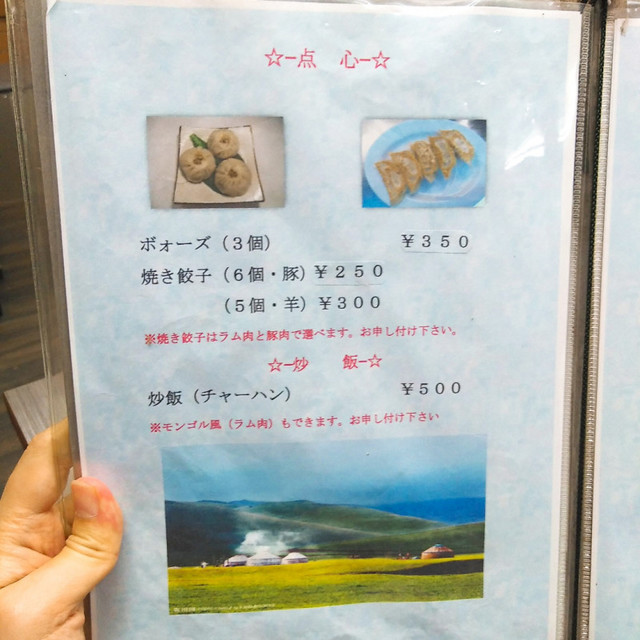 ☆ー点 心ー☆
ボォーズ（3個） ￥350
焼き餃子（6個・豚）￥250
（5個・羊）￥300
※焼き餃子はラム肉と豚肉で選べます。お申し付け下さい。
☆ー炒 飯ー☆
炒飯（チャーハン） ￥500
※モンゴル風（ラム肉）もできます。お申し付け下さい